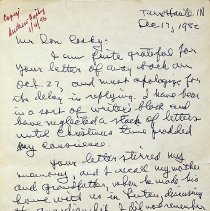 Terre Haute, IN
Dec. 17, 1980
Mr. Don Cosby:
I am quite grateful for
your letter of away back on
Oct. 27, and must apologize for
the delay in replying. I have been
in a sort of writer's block and
have neglected a stack of letters
until Christmas time prodded
my conscience.
Your letter stirred my
memory, and I recall my mother
and grandfather, when he made his
home with us in I. ten, discussing
did remember